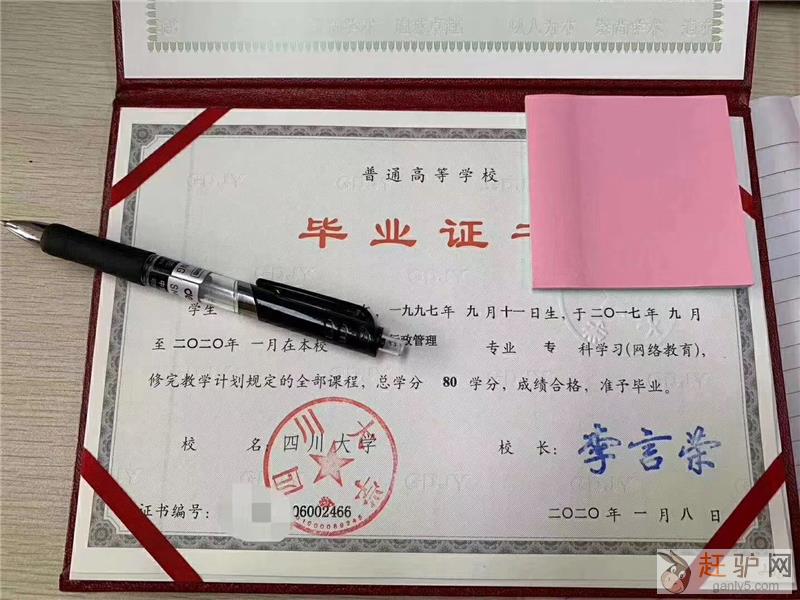 普通高等学校
毕业证
学生
一九九七年 九月十一日生，于二〇一七年 九月
至二〇二〇年 一月在本校 行政管理 专业 专 科学习(网络教育)，
修完教学计划规定的全部课程，总学分 80 学分，成绩合格，准予毕业。
校 名：四川大学
校 长：李言荣
证书编号：
06002466
二〇二〇年 一月八日
赶驴网
ganlv5.com